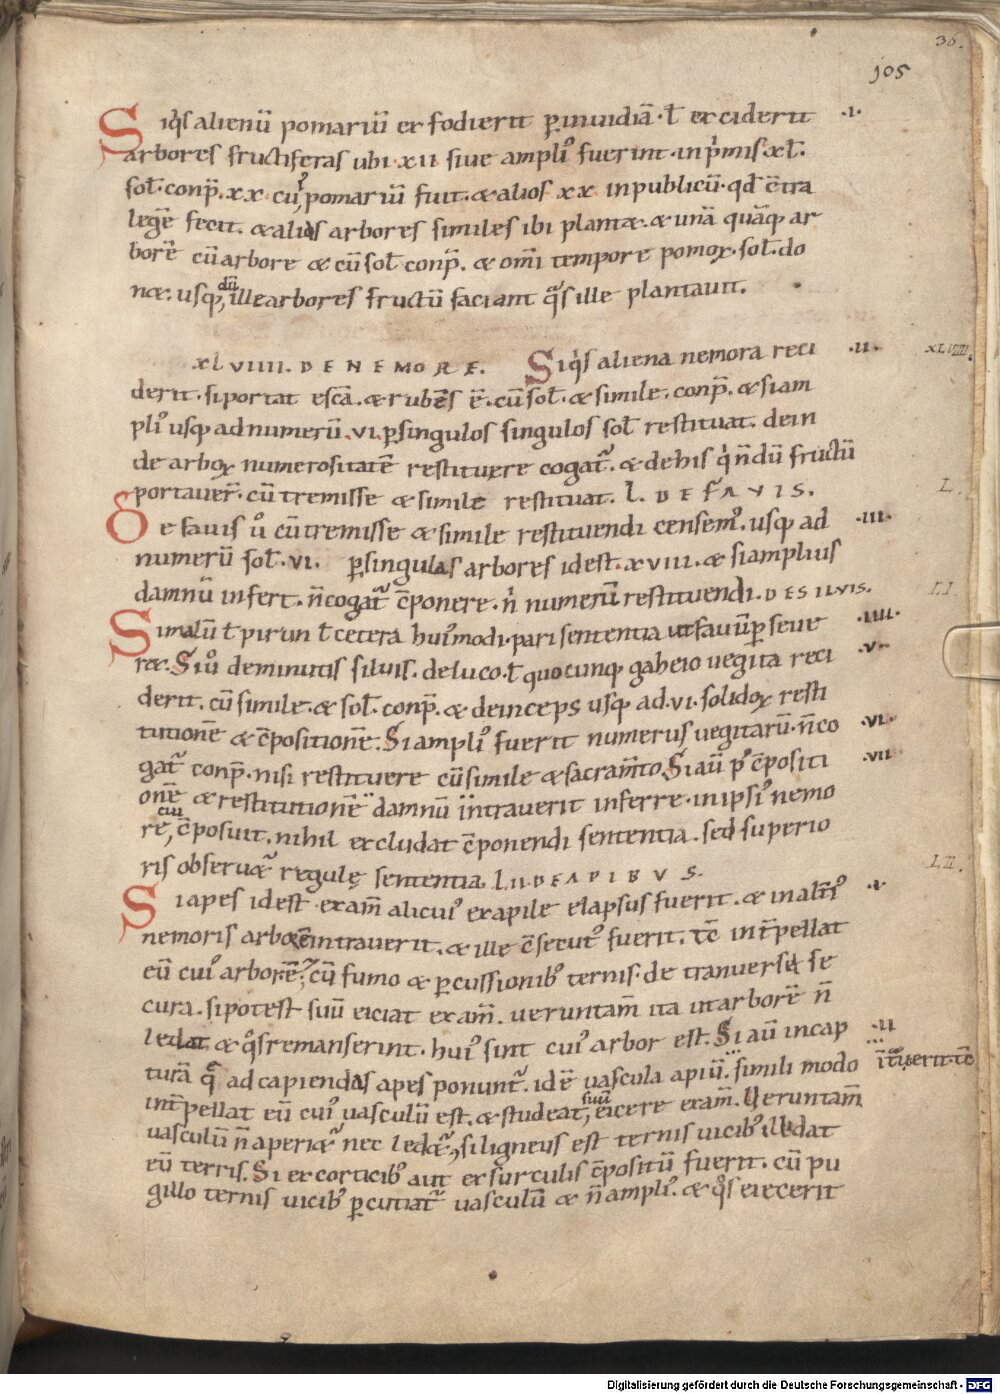 36.
105
Siq̇s alienū pomariū exfodierit p̱inuidiā· ł exciderit ·I·
arbores fructiferas ubi·xii siue ampli᷒ fuerint·inp̍mis·xl·
soł·conp̄·xx·cui᷒ pomariū fuit·&alios xx inpublicū·qđ c̄tra
legē fecit·&alias arbores similes ibi plantæ·&unā quāq; ar
borē cūarbore & cūsoł conp̄·& om̄i tempore pomoꝝ·soł·do
næ·usq; dū illearbores fructū faciant q̊s ille plantauit·
XLVIIII·DENEMORE· Siq̇s aliena nemora reci ·II· XLVIIII·
derit·siportat escā·&rubens ē·cūsoł·&simile·conp̄·&siam
pli᷒ usq; adnumerū·vi·p̱singulos singulos soł restituat·dein
de arboꝝ numerositatē restituere cogat᷑·&dehis q̇ n̄dū fructū
portauer̄·cū tremisse &simile restituat·L·DEFAVIS· L·
De fauis ů cū tremisse &simile restituendi censem᷒·usq; ad ·III·
numerū soł·vi· p̱singulas arbores idest·xviii·& siamplius
damnū infert·n̄cogat᷑ c̄ponere·n̍ numerū restituendi·DESILVIS· LI·
Simalū ł pirun ł cetera hui᷒modi·pari sententia utfauū p̱seue ·IIII·
ret·Siů deminutis siluis·deluco·ł quocunq; gaheio uegita reci ·V·
derit·cūsimile·&soł·conp̄·&deinceps usq; ad·vi·solidoꝝ resti
tutionē &c̄positionē·Siampli᷒ fuerit numerus uegitarū·n̄co ·VI·
gat᷑ conp̄·nisi restituere cūsimile &sacram̄to·Siaū p᷒ c̄positi ·VII·
onē &restitutionē damnū intrauerit inferre·inipsi᷒ nemo
re, cui c̄posuit·nihil excludat c̄ponendi sententia·sed superio
ris obseruæ᷑ regulę sententia·LII·DEAPIBVS· LII·
Siapes idest exam̄ alicui᷒ exapile elapsus fuerit·&inalt̄i᷒ ·I·
nemoris arborē intrauerit·&ille c̄secut᷒ fuerit·tc̄ int̄pellat
eū cui᷒ arbor ē·& cū fumo &p̱cussionib᷒ ternis·de tranuersa se
cura·sipotest suū eiciat exam̄·ueruntam̄ ita utarbor ē n̄
ledat·&q̊sremanserint·hui᷒ sint cui᷒ arbor est·Siaū incap ·II·
turā q̄ adcapiendas apes ponunt᷑·idē uascula apiū·simili modo int̄uerit·tc̄
int̄pellat eū cui᷒ uasculū est·&studeat, suū eicere exam̄·Ueruntam̄
uasculū n̄aperiæ᷑ nec ledæ᷑, siligneus est ternis uicib᷒ illidat
eū terris·Si excorticib᷒ aut exsurculis c̄positū fuerit·cū pu
gillo ternis uicib᷒ p̱cutiat᷑ uasculū &n̄ampli᷒·&q̊s eiecerit
Digitalisierung gefördert durch die Deutsche Forschungsgemeinschaft - DFG